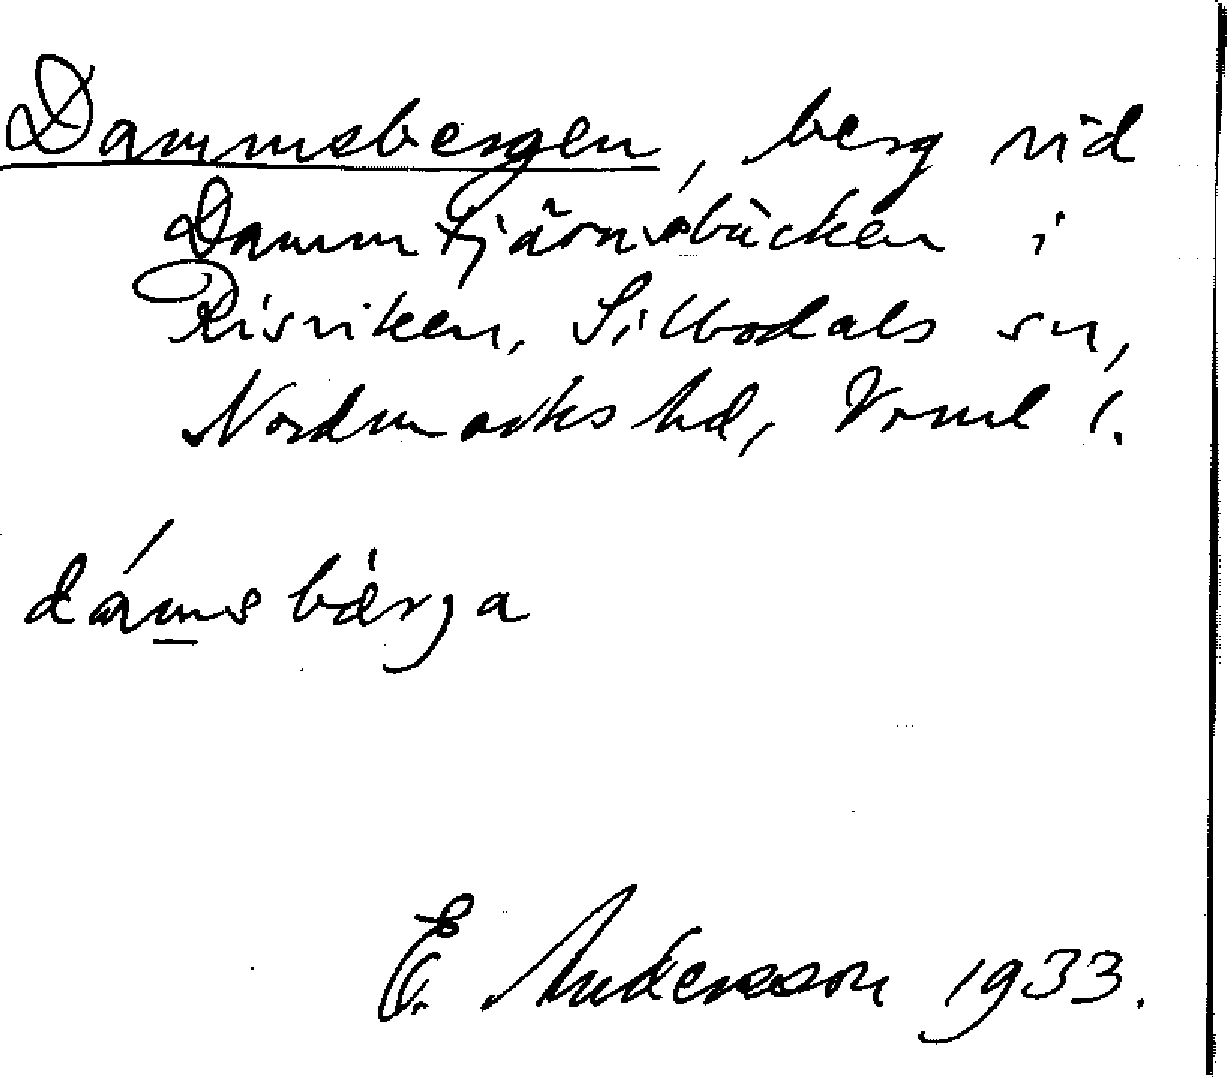 Dammsbergen, berg vid
Dammtjärnsbäcken i
Risviken, Silbodals sn,
Nordmarks hd, Vrml l.
dámsbærja
E. Andersson 1933.